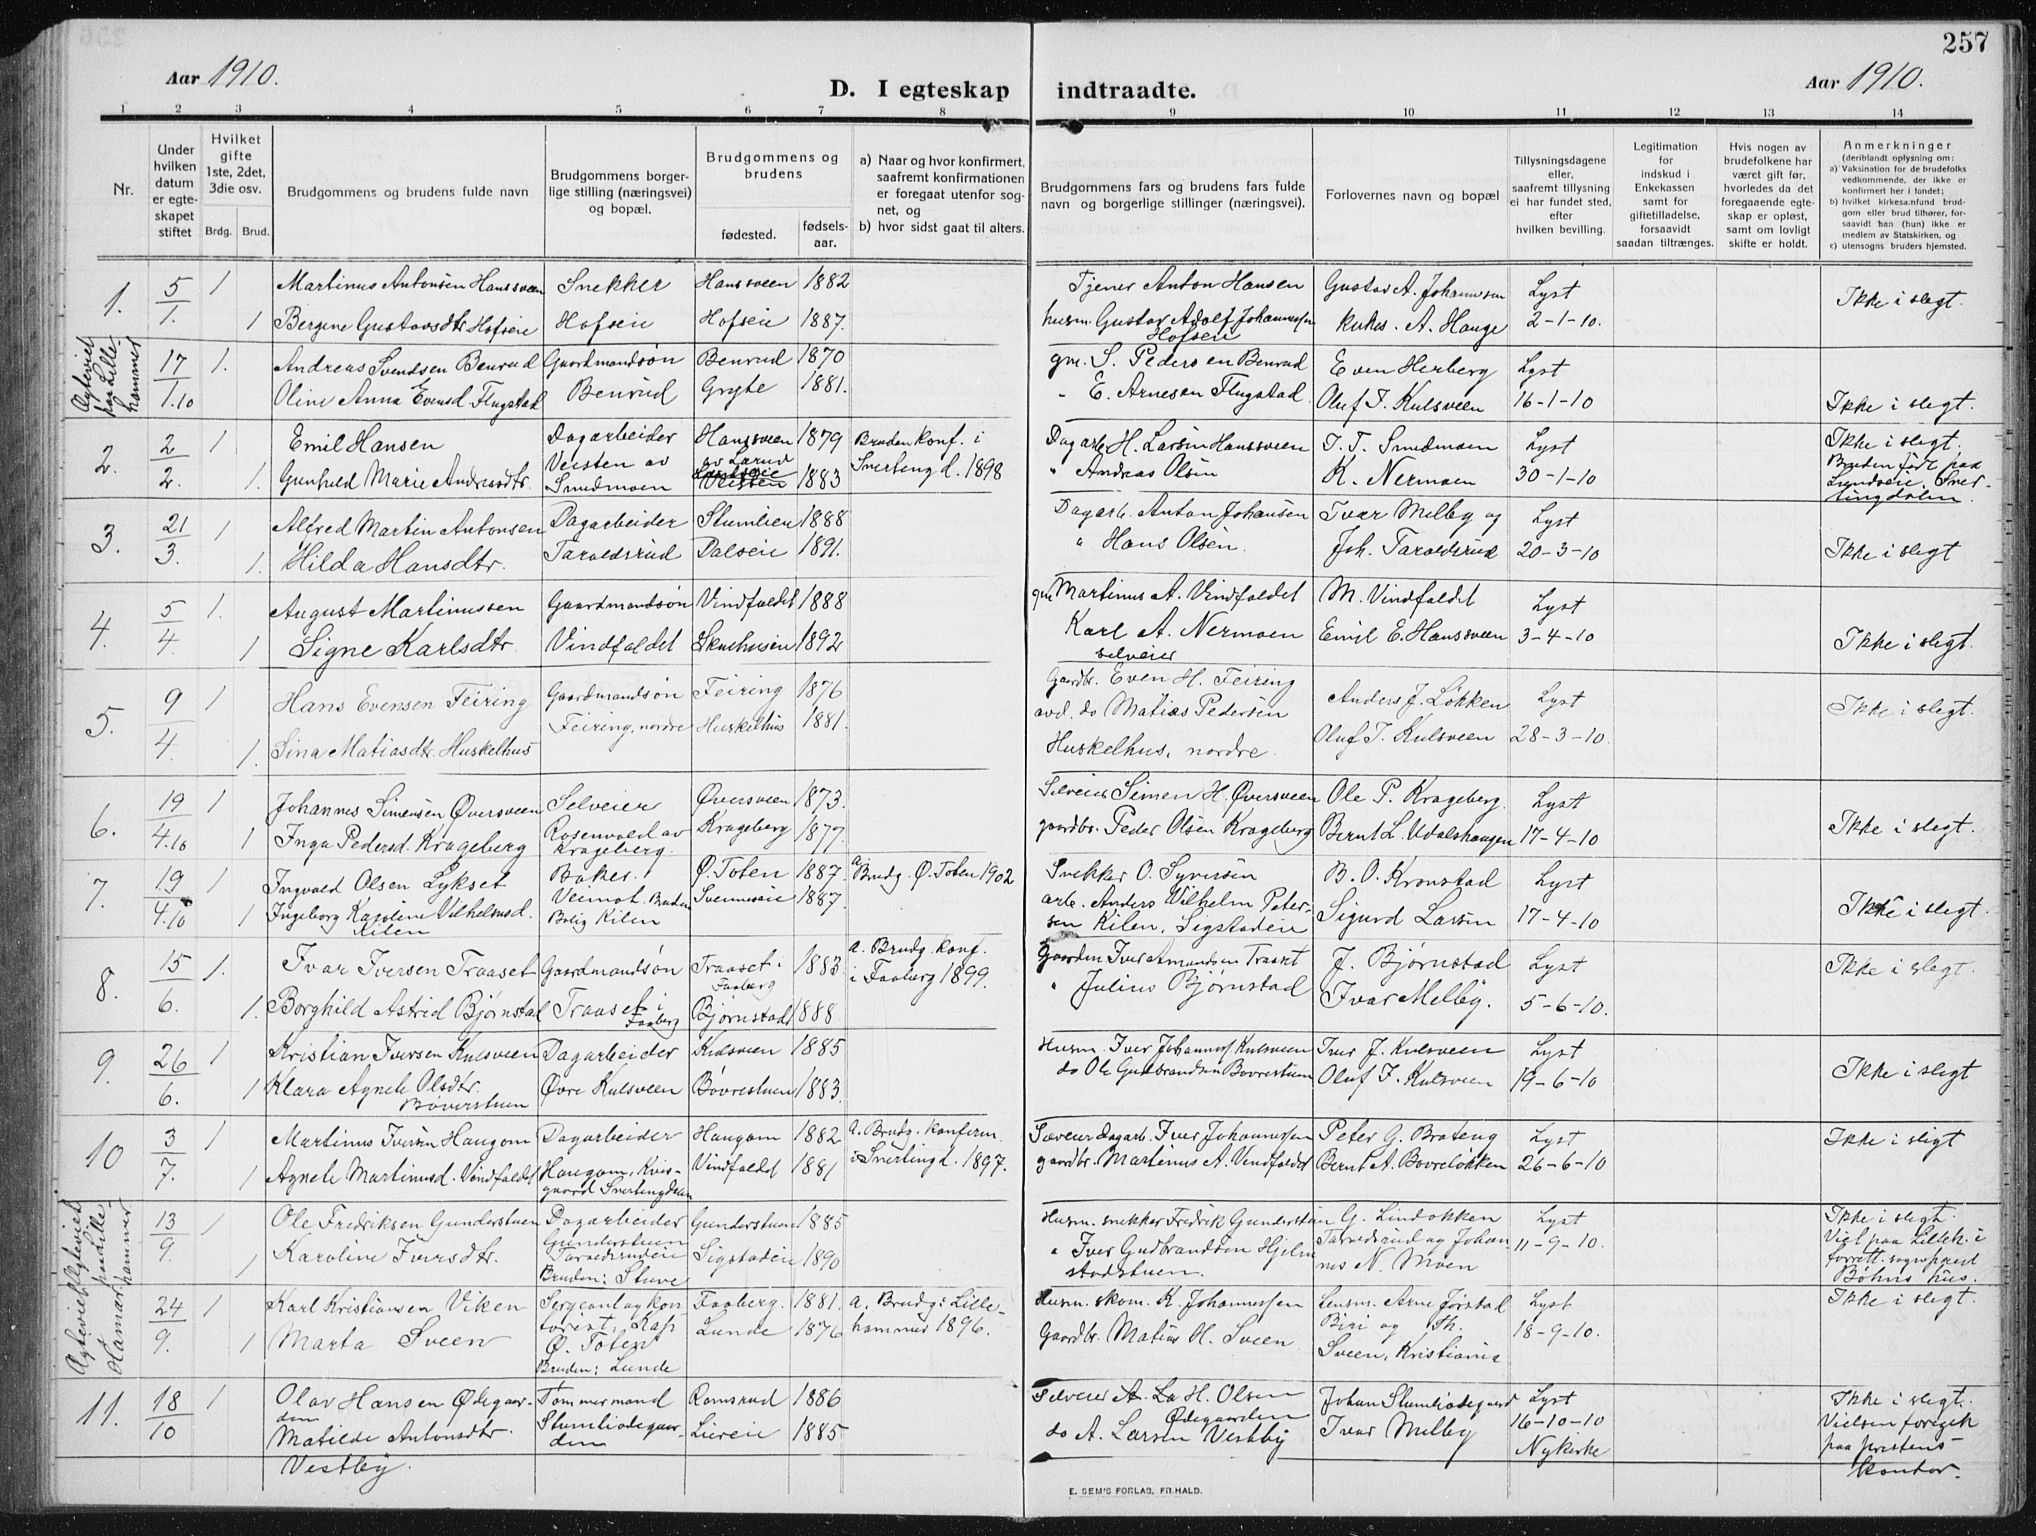 257
Aar 1910.
D. I egteskap indtraadte.
Aar 1910.
1 2 3 4 5 6 7 8 9 10 11 12 13 14
Nr.
Under hvilken datum er egteskapet stiftet
Hvilket gifte 1ste, 2det, 3die osv.
Brdg. Brud.
Brudgommens og brudens fulde navn
Brudgommens borgerlige stilling (næringsvei) og bopæl.
Brudgommens og brudens
fødested.
fødselsaar.
a) Naar og hvor konfirmert, saafremt konfirmationen er foregaat utenfor sognet, og
b) hvor sidst gaat til alters.
Brudgommens fars og brudens fars fulde navn og borgerlige stillinger (næringsvei).
Forlovernes navn og bopæl
Tillysningsdagene eller, saafremt tillysning ei har fundet sted, efter hvilken bevilling.
Legitimation for indskud i Enkekassen samt for giftetilladelse, forsaavidt saadan tiltrænges.
Hvis nogen av brudefolkene har været gift før, hvorledes da det foregaaende egteskap er opløst, samt om lovligt skifte er holdt.
Anmerkninger
(deriblandt oplysning om:
a) Vaksination for de brudefolks vedkommende, der ikke er konfirmert her i landet;
b) hvilket kirkesamfund brudgom eller brud tilhører, forsaavidt han (hun) ikke er medlem av Statskirken, og
c) utensogns bruders hjemsted.
1. 5/1. 1 Martinus Antonsen Hanssveen Snekker Hanssveen 1882 Tjener Anton Hansen Gustav A. Johannsen Lyst Ikke i slegt.
1 Bergine Gustavsdtr. Hofseie Hofseie Hofseie 1887. husm. Gustav Adolf Johannessen Hofseie A. Hauge 2-1-10.
Lillehammer 17/1.10 1. Andreas Svendsen Benrud Gaardmandsøn Benrud 1870 gm. S. Pedersen Benrud Even Herberg Lyst
Oline Anna Evensd. Flugstad Benrud Grythe 1881. " E. Arnesen Flugstad Oluf T. Kulsveen 16-1-10 Ikke i slegt.
2. 2/2. 1 Emil Hansen Dagarbeider Hanssveen 1879 Bruden konf. i Dagarb. H. Larsen Hanssveen T. T. Smedmoen Lyst Ikke i slegt.
1. Gunhild Marie Andreasdtr. Veisten av Smedmoen 1883 Snertingd. 1898 " Andreas Olsen K. Nermoen 30-1-10 Bruden født paa Lundseie, Snertingdalen.
3. 21/3. 1 Alfred Martin Antonsen Dagarbeider Slumlien 1888 Dagarb. Anton Johansen Ivar Melby og Lyst
1. Hilda Hansdtr. Taraldsrud Dalseie 1891. " Hans Olsen. Joh. Taraldsrud 20-3-10 Ikke i slegt
4. 5/4. 1. August Martinussen Gaardmandsøn Vindfaldet 1888 gm Martinus A. Vindfaldet M. Vindfaldet Lyst
1 Signe Karlsdtr. Vindfaldet Skuehusen 1892 Karl A. Nermoen selveier Emil E. Hanssveen 3-4-10 Ikke i slegt.
5. 9/4. 1 Hans Evensen Feiring Gaardmandsøn Feiring 1876 Gaardbr. Even H. Feiring Anders J. Løkken Lyst Ikke i slegt.
1. Sina Matiasdtr. Huskelhus Feiring, nordre Huskelhus 1881. avd. do Matias Pedersen Huskelhus, nordre. Oluf T. Kulsveen 28-3-10.
6. 19/4.10 1 Johannes Simensen Øversveen Selveier Øversveen 1873. Selveier Simen H. Øversveen Ole P. Krageberg. Lyst
1 Inga Pedersd. Krageberg Rosenvold av Krageberg. Krageberg 1877. gaardbr. Peder Olsen Krageberg Bernt L. Udalshaugen 17-4-10 Ikke i slegt.
7. 19/4.10 1 Ingvald Olsen Lykset Baker. Ø. Toten 1887. a. Brudg. Ø. Toten 1902 Snekker O. Syversen B. O. Kronstad Lyst
1 Ingeborg Karoline Vilhelmsd. Kilen Veimot. Bruden Bolig Kilen Svennseie 1887. arb. Anders Vilhelm Petersen Kilen, Sigstadeie Sigurd Larsen 17-4-10 Ikke i slegt.
8. 15/6. 1. Ivar Iversen Traaset Gaardmandsøn Traaset i Faaberg 1883 a. Brudg. konf. i Faaberg 1899. Gaardm Iver Amundsen Traaset J. Bjørnstad Lyst Ikke i slegt.
1. Borghild Astrid Bjørnstad Traaset i Faaberg Bjørnstad 1888 " Julius Bjørnstad Ivar Melby. 5-6-10.
9. 26/6. 1 Kristian Iversen Kulsveen Dagarbeider Kulsveen 1885 Husm. Iver Johanness. Kulsveen Iver J. Kulsveen Lyst
1 Klara Agnete Olsdtr. Bøverstuen Øvre Kulsveen Bøvrestuen 1883. do Ole Gudbrandsen Bøvrestuen Oluf T. Kulsveen 19-6-10 Ikke i slegt
10 3/7. 1 Martinus Iversen Haugom Dagarbeider Haugom 1882 a. Brudg. konfirm. i Snertingd. 1897. Selveier dagarb. Iver Johannessen Peter G. Brateng Lyst Ikke i slegt
1 Agnete Martinusd. Vindfaldet Haugom, Kvisgaard Snertingdalen Vindfaldet 1881 gaardbr. Martinus A. Vindfaldet Bernt A. Bøvreløkken 26-6-10
Egteviet paa Lillehammer 13/9. 1 Ole Fredriksen Gunderstuen Dagarbeider Gunderstuen Gunderstuen 1885 Husm. snekker Fredrik Gunderstuen G. Lindokken Lyst Ikke i slegt.
1 Karoline Iversdtr. Taraldsrudeie Bruden: Stuve Sigstadeie 1890 " Iver Gudbrandsen Hjelmstadstuen. Taraldsrud og Johannes N. Moen 11-9-10. Viet paa Lilleh. i forrett. sogneprest Bøhns hus.
Egteviet Hamar 24/9. 1 Karl Kristiansen Viken Sergeant og kontorist, Kap Faaberg. 1881. a. Brudg: Lillehammer 1896. Husm. skom. K. Johannessen Lensm. Arne Jørstad Lyst Ikke i slegt.
1 Marta Sveen Ø. Toten Bruden: Lunde Lunde 1876 Gaardbr. Matias H. Sveen Biri og Th. Sveen, Kristiania 18-9-10.
11. 18/10 1 Olav Hansen Ødegaarden Tømmermand Ramsrud 1886 Selveier H. Olsen Ødegaarden Johan Slumliødegaard Lyst Ikke i slegt.
Matilde Antonsdtr. Vestby. Slumliødegaarden Liereie 1885 do A. Larsen Vestby Ivar Melby 16-10-10 Nykirke Vielsen foregik paa prestens kontor.
E. SEM'S FORLAG, FR.HALD.